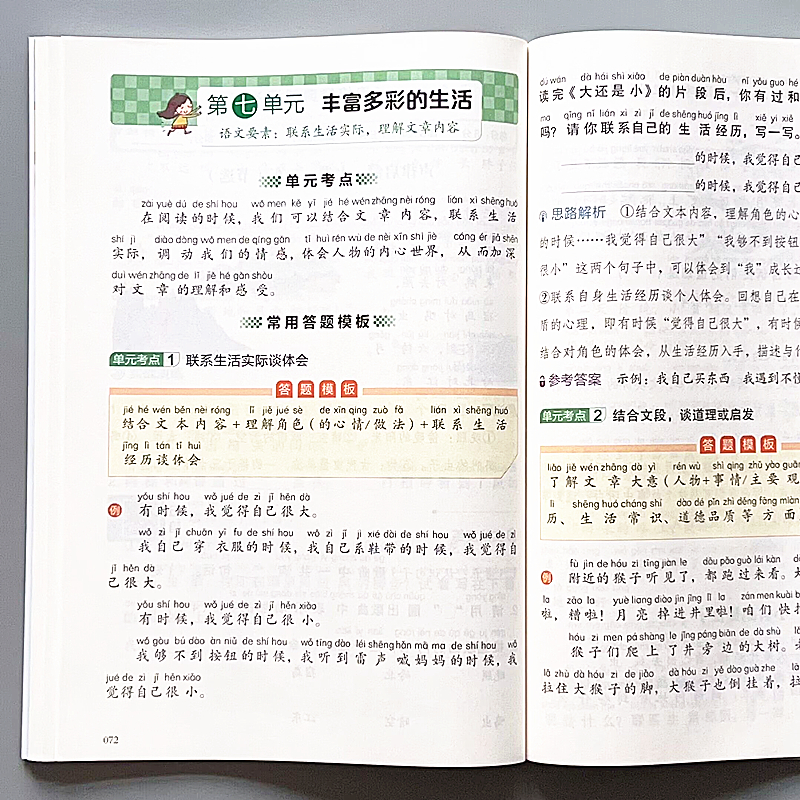 第七单元 丰富多彩的生活
语文要素：联系生活实际，理解文章内容
单元考点
zài yuè dú de shí hou wǒ men kě yǐ jié hé wén zhāng nèi róng lián xì shēng huó
在阅读的时候，我们可以结合文章内容，联系生活
shí jì diào dòng wǒ men de qíng gǎn tǐ huì rén wù de nèi xīn shì jiè cóng ér jiā shēn
实际，调动我们的情感，体会人物的内心世界，从而加深
duì wén zhāng de lǐ jiě hé gǎn shòu
对文章的理解和感受。
常用答题模板
单元考点 1 联系生活实际谈体会
答题模板
jié hé wén běn nèi róng lǐ jiě jué sè de xīn qíng zuò fǎ lián xì shēng huó
结合文本内容+理解角色(的心情/做法)+联系生活
jīng lì tán tǐ huì
经历谈体会
yǒu shí hou wǒ jué de zì jǐ hěn dà
例 有时候，我觉得自己很大。
wǒ zì jǐ chuān yī fu de shí hou wǒ zì jǐ jì xié dài de shí hou wǒ jué de zì
我自己穿衣服的时候，我自己系鞋带的时候，我觉得自
jǐ hěn dà
己很大。
yǒu shí hou wǒ jué de zì jǐ hěn xiǎo
有时候，我觉得自己很小。
wǒ gòu bú dào àn niǔ de shí hou wǒ tīng dào léi shēng hǎn mā ma de shí hou wǒ
我够不到按钮的时候，我听到雷声喊妈妈的时候，我
jué de zì jǐ hěn xiǎo
觉得自己很小。
072
dú wán dà hái shì xiǎo de piàn duàn hòu nǐ yǒu guo hé
读完《大还是小》的片段后，你有过和
ma qǐng nǐ lián xì zì jǐ de shēng huó jīng lì xiě yi xiě
吗？请你联系自己的生活经历，写一写。
的时候，我觉得自己
的时候，我觉得自己
思路解析 ①结合文本内容，理解角色的心
的时候……我觉得自己很大”“我够不到按钮
很小”这两个句子中，可以体会到“我”成长过
②联系自身生活经历谈个人体会。回想自己在
质的心理，即有时候“觉得自己很大”，有时候
结合对角色的体会，从生活经历入手，描述与
参考答案 示例：我自己买东西 我遇到不懂
单元考点 2 结合文段，谈道理或启发
答题模板
liǎo jiě wén zhāng dà yì rén wù shì qing zhǔ yào guān
了解文章大意(人物+事情/主要观
lì shēng huó cháng shí dào dé pǐn zhì děng fāng miàn
历、生活常识、道德品质等方面
fù jìn de hóu zi tīng jiàn le dōu pǎo guò lái kàn
例 附近的猴子听见了，都跑过来看。
la zāo la yuè liang diào jìn jǐng lǐ la zán men kuài
啦，糟啦！月亮掉进井里啦！咱们快
hóu zi men pá shàng le jǐng páng biān de dà shù
猴子们爬上了井旁边的大树。
lā zhù dà hóu zi de jiǎo dà hóu zi yě dào guà zhe
拉住大猴子的脚，大猴子也倒挂着，